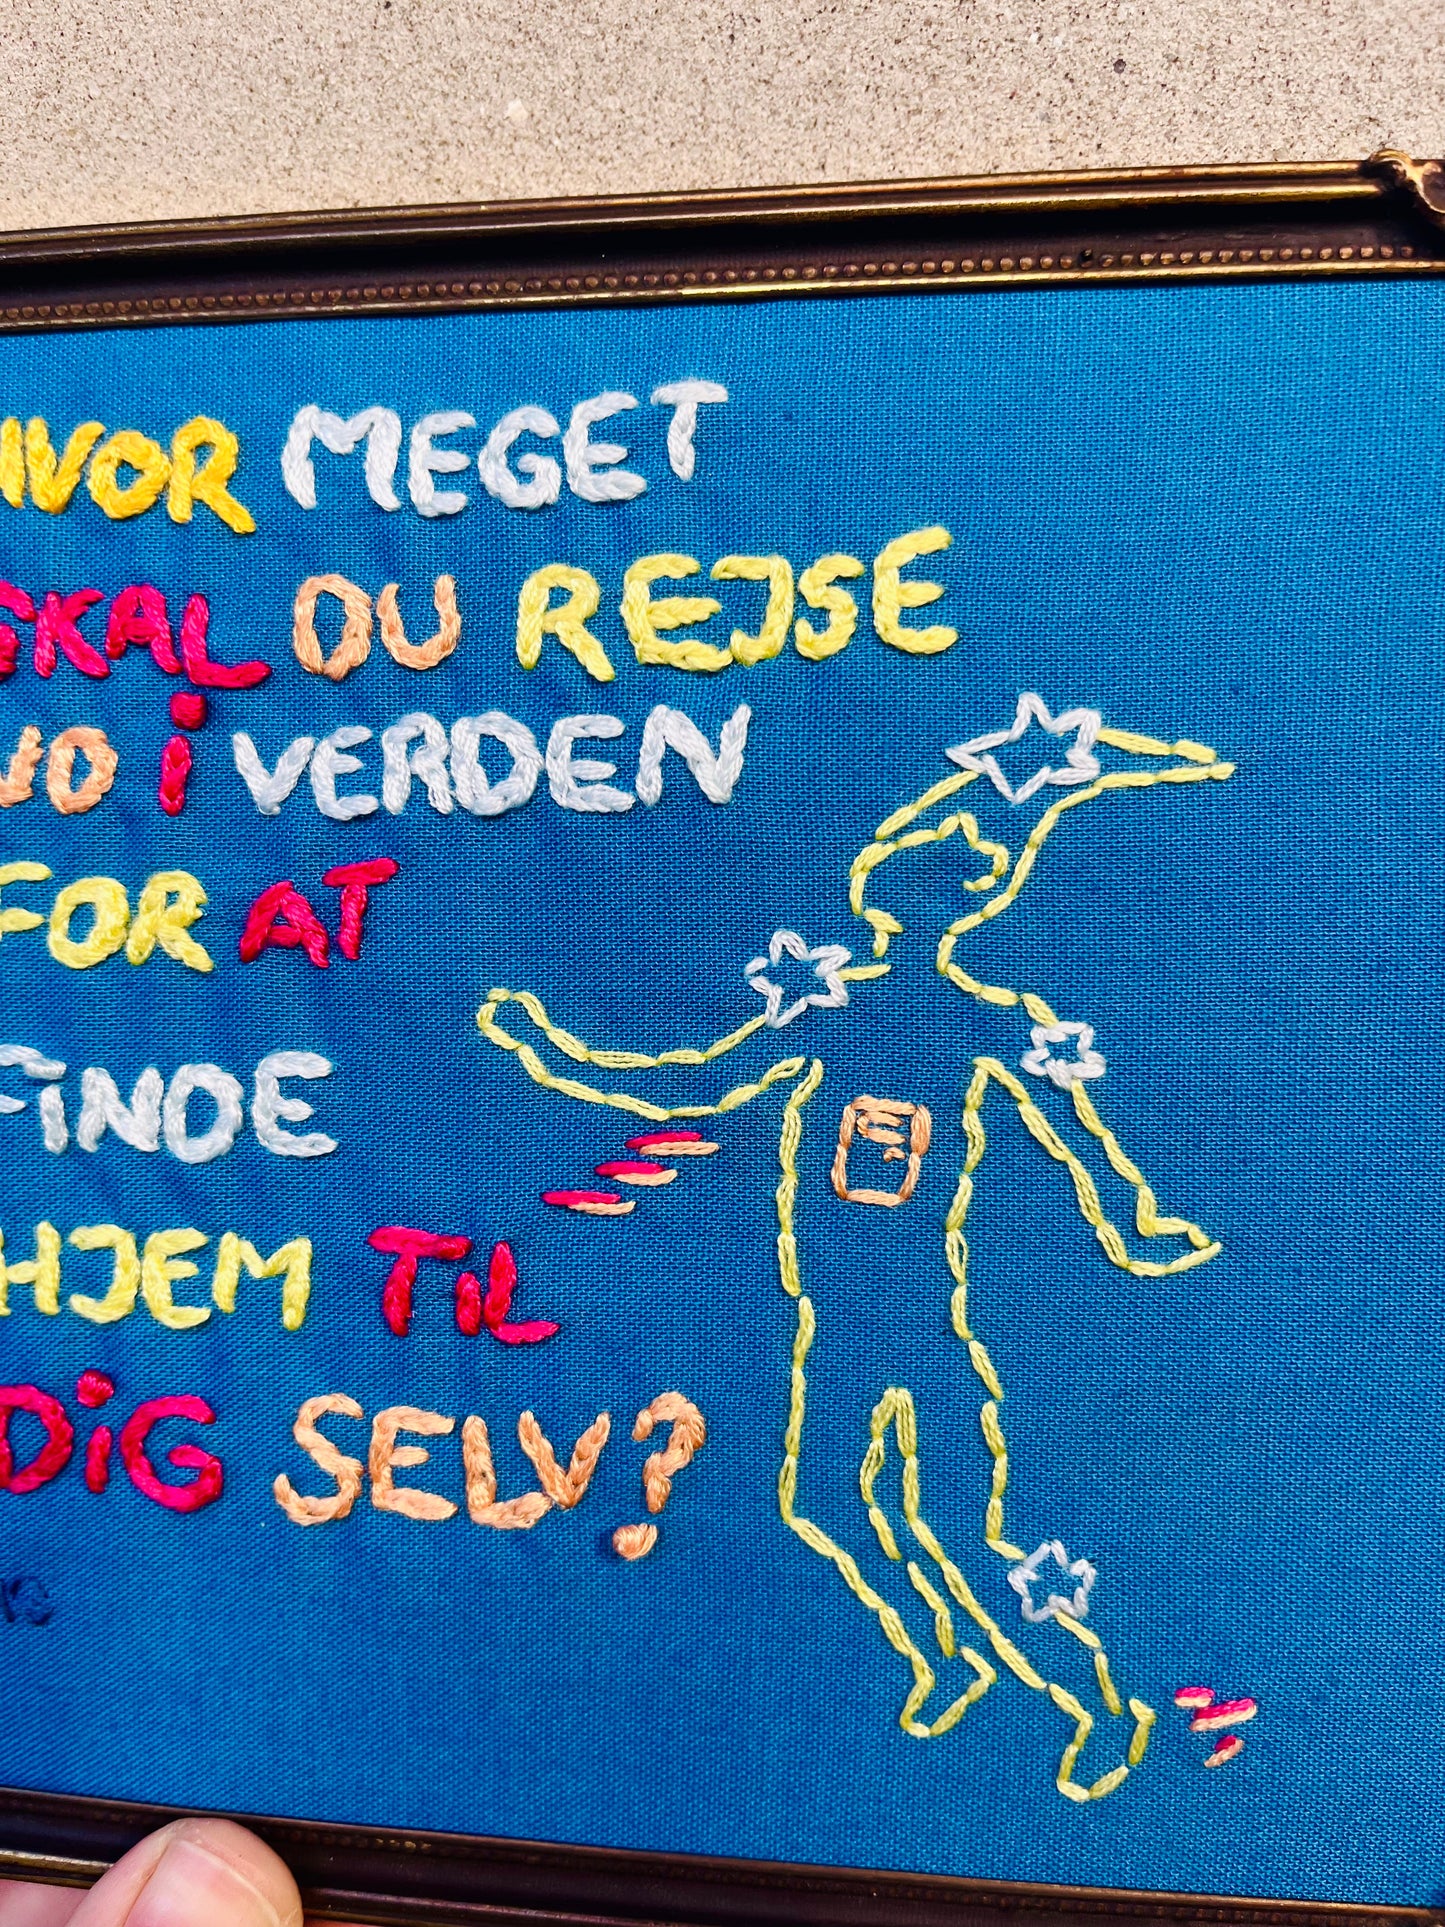 HVOR MEGET
SKAL DU REJSE
UD i VERDEN
FOR AT
FiNDE
HJEM TiL
DiG SELV?